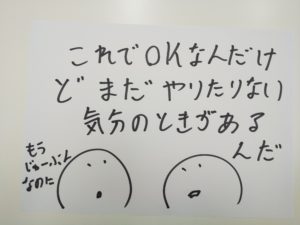 これでOKなんだけ
どまだやりたりない
気分のときがある
んだ
もう
じゅーぶん
なのに